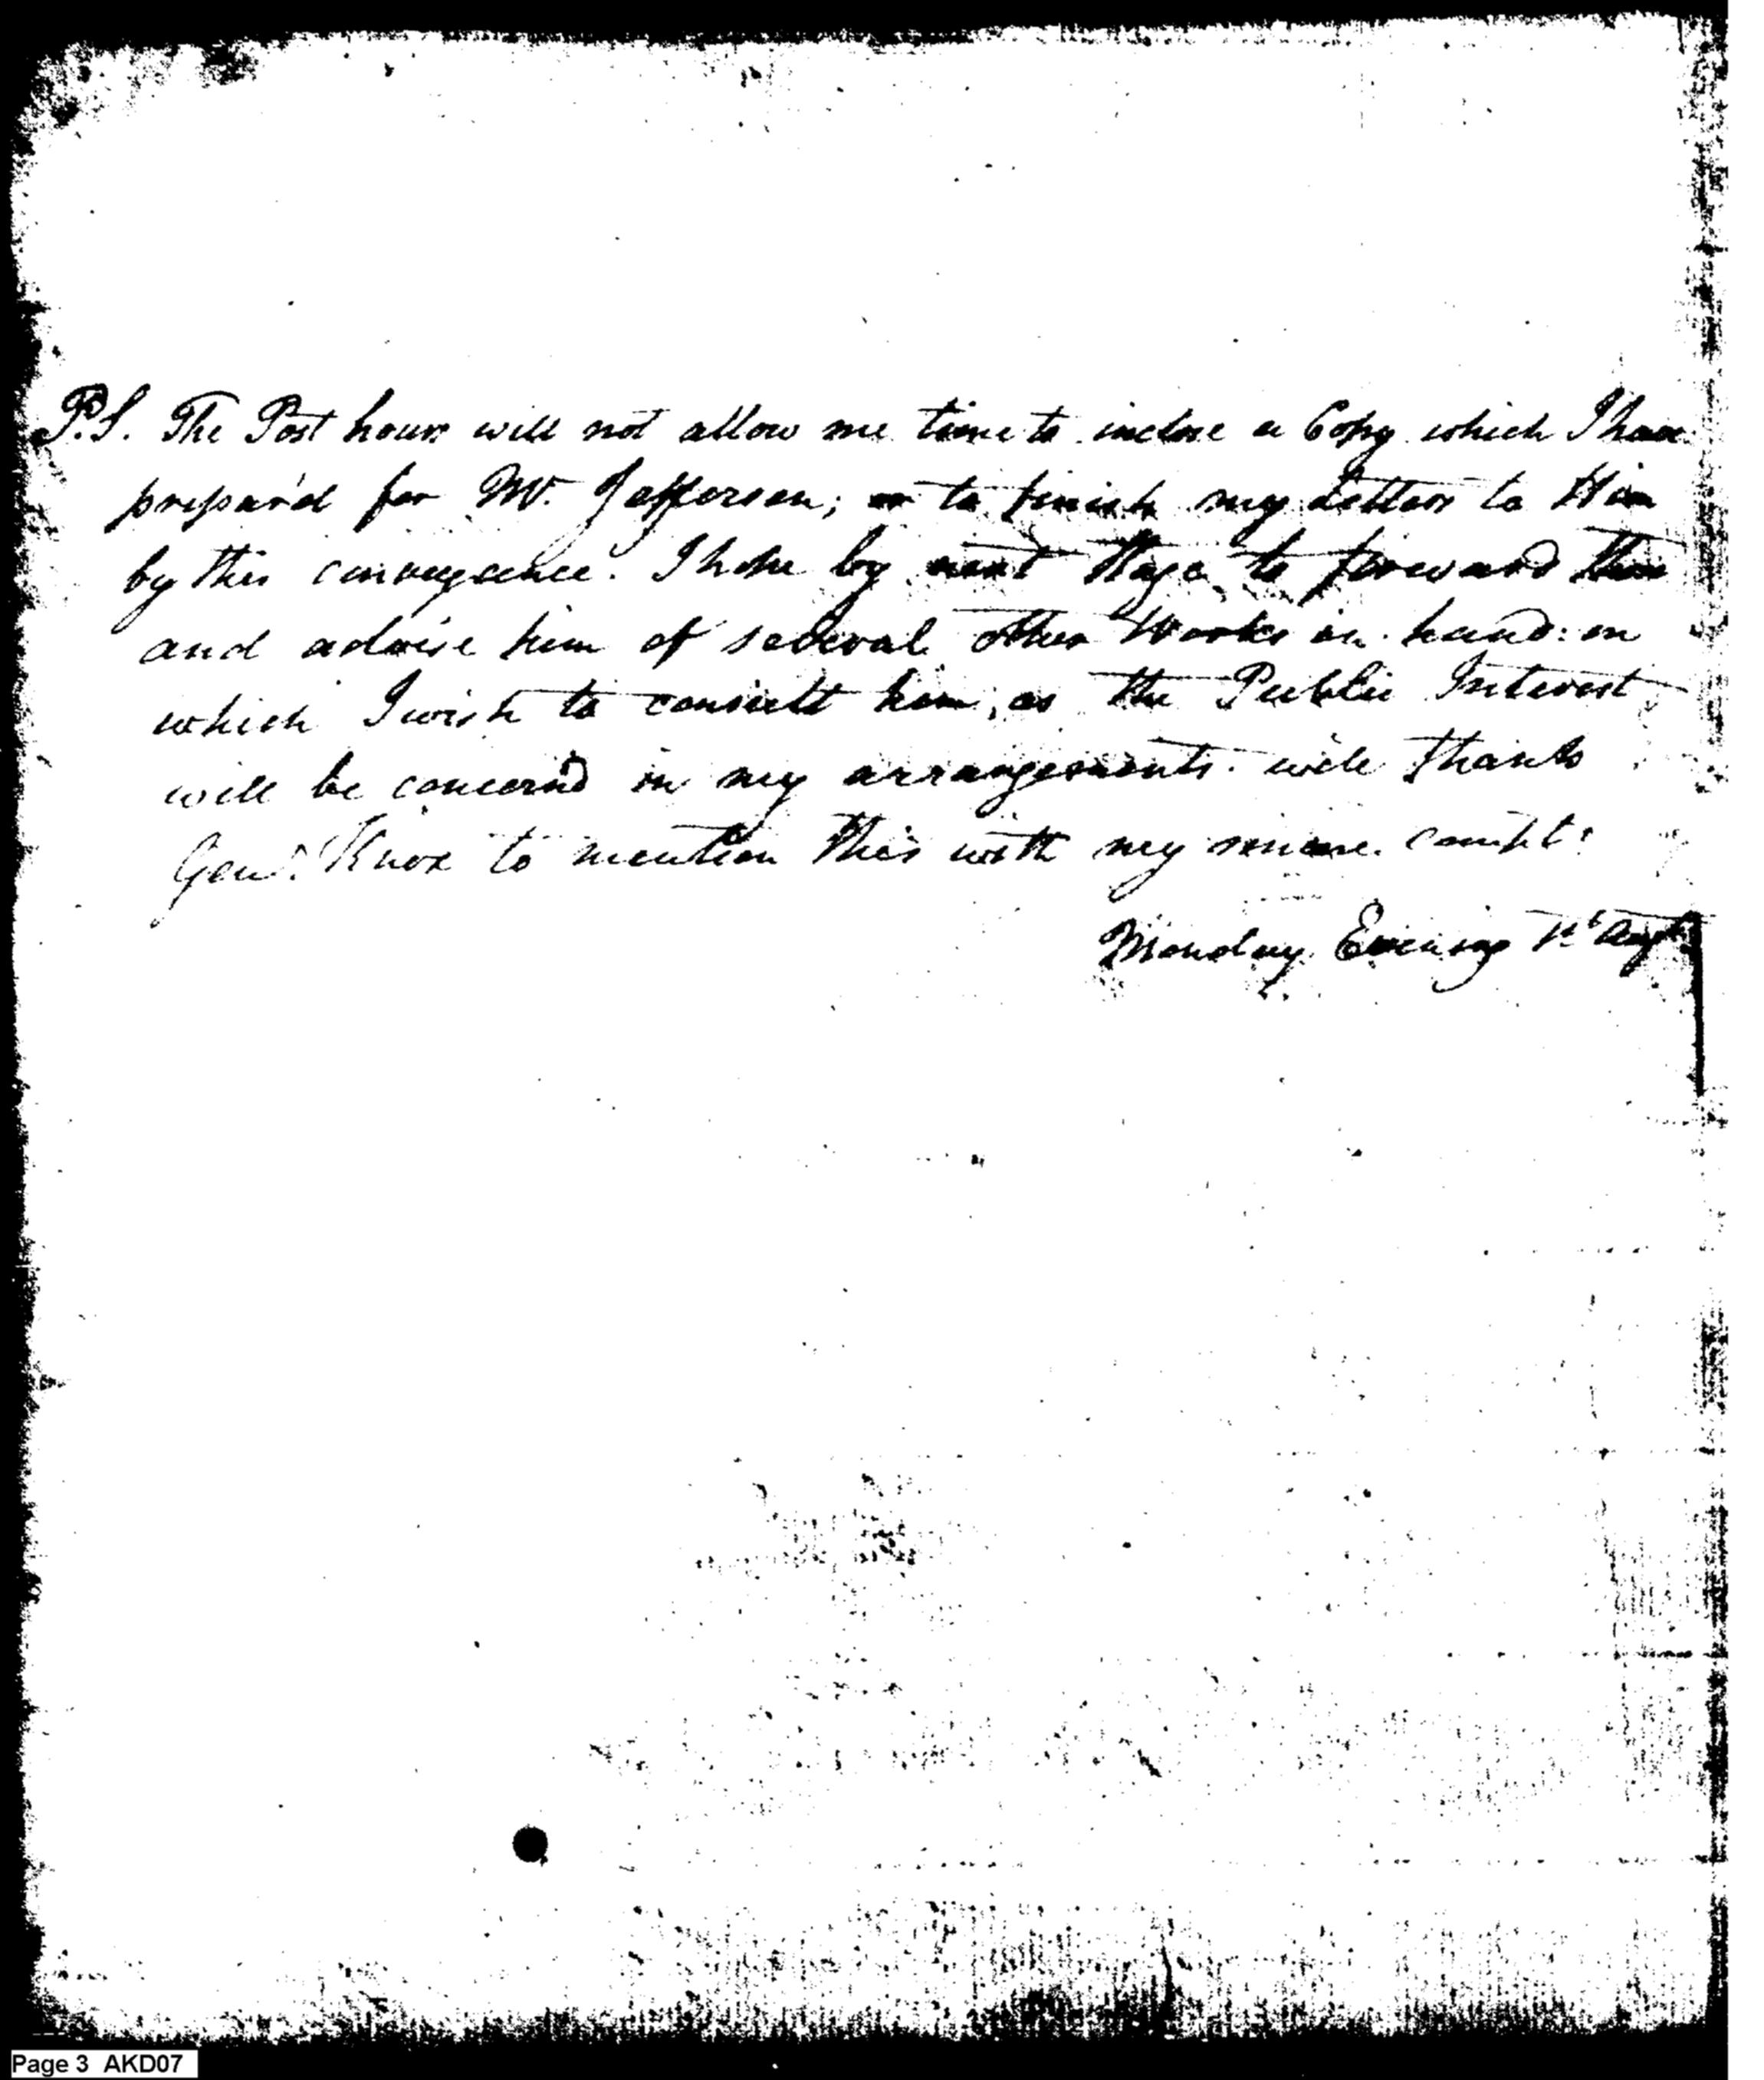 P.S. The Post hour will not allow me time to inclose a Copy which I have
prepar'd for Mr. Jefferson; or to finish my Letters to Him
by this conveyance. I hope by next Stage to forward them
and advise him of several other Works in hand: on
which I wish to consult him, as the Public Interest
will be concern'd in my arrangements. will thank
Genl. Knox to mention this with my sincere compts.
Monday Evening 1st Augt
Page 3 AKD07